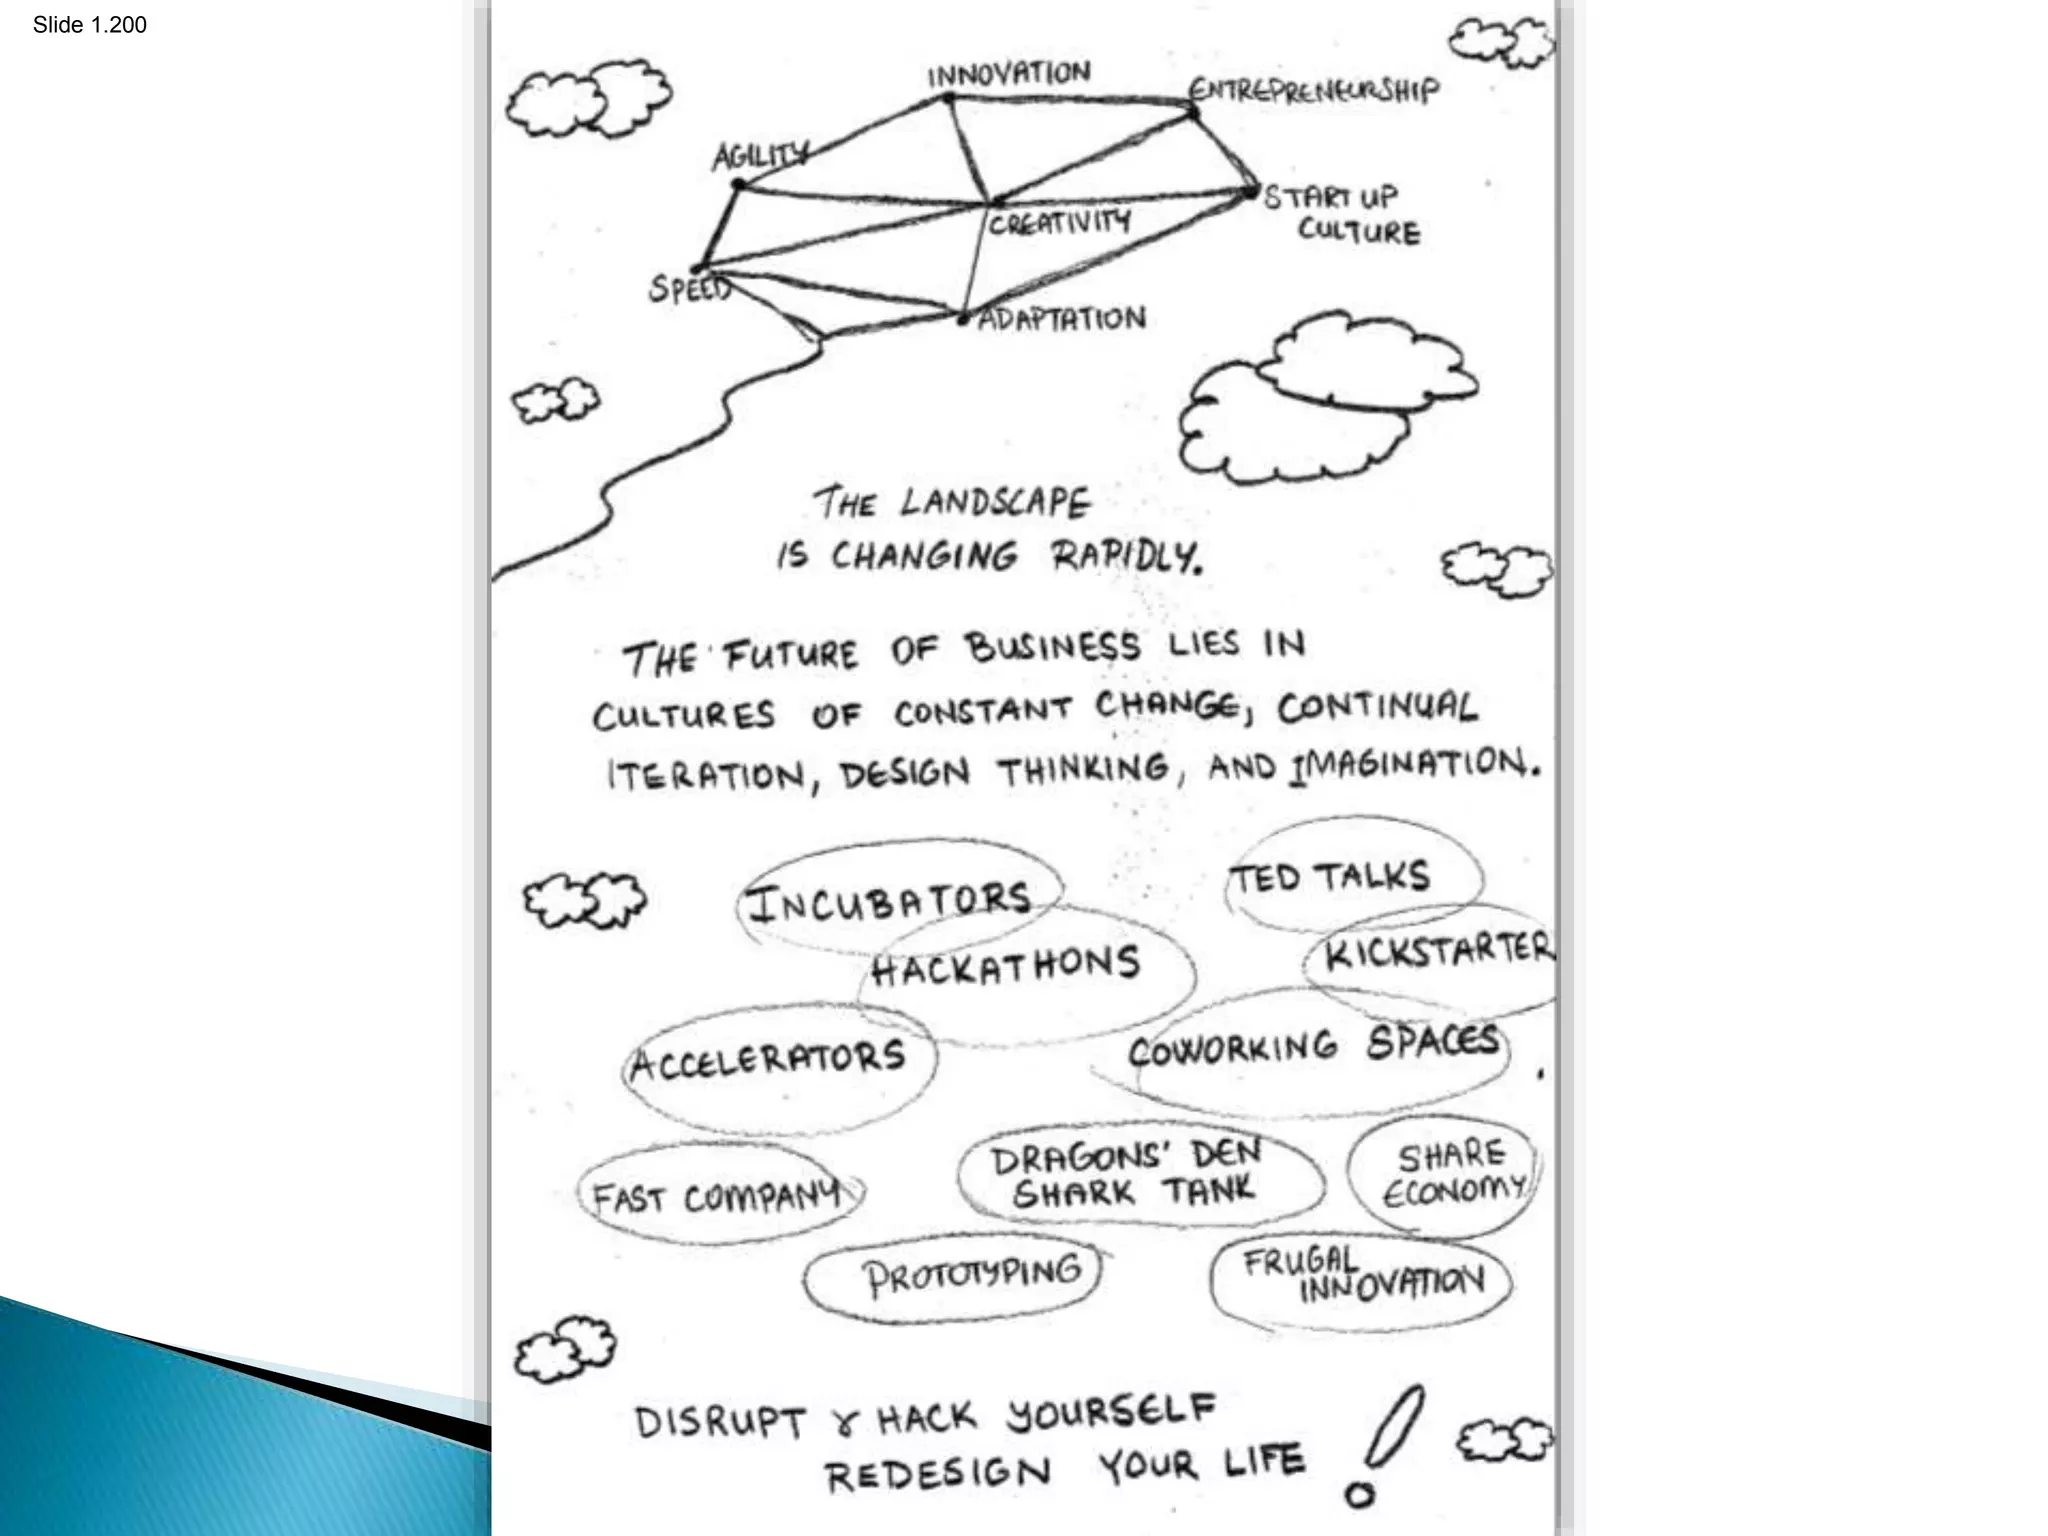 Slide 1.200
INNOVATION
ENTREPRENEURSHIP
AGILITY
START UP
CULTURE
CREATIVITY
SPEED
ADAPTATION
THE LANDSCAPE
IS CHANGING RAPIDLY.
THE FUTURE OF BUSINESS LIES IN
CULTURES OF CONSTANT CHANGE, CONTINUAL
ITERATION, DESIGN THINKING, AND IMAGINATION.
INCUBATORS
TED TALKS
HACKATHONS
KICKSTARTER
ACCELERATORS
COWORKING SPACES
FAST COMPANY
DRAGONS' DEN
SHARK TANK
SHARE
ECONOMY
PROTOTYPING
FRUGAL
INNOVATION
DISRUPT & HACK YOURSELF
REDESIGN YOUR LIFE !